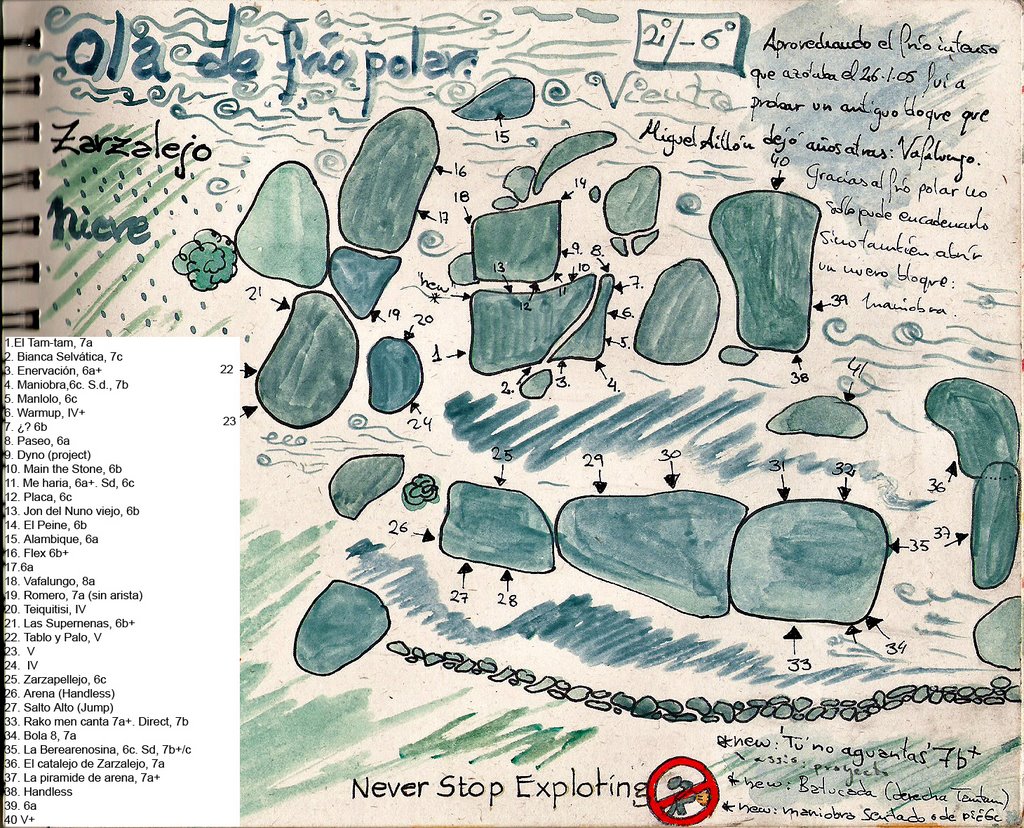 Ola de frío polar.
2º/-6º
Viento
Zarzalejo
Nieve
Aprovechando el frío intenso
que azotaba el 26.1.05 fui a
probar un antiguo bloque que
Miguel Aillón dejó años atras: Vafalungo.
Gracias al frío polar no
sólo pude encadenarlo
sino también abrir
un nuevo bloque:
Maniobra.
15
16
17
18
14
40
9.
8.
10
13
11
12
7.
"new"
*
6.
5.
1
2.
3.
4.
39
38
21
19
20
22
23
24
41
36
37
25
29
30
31
32
26
35
27
28
33
34
1.El Tam-tam, 7a
2. Bianca Selvática, 7c
3. Enervación, 6a+
4. Maniobra,6c. S.d., 7b
5. Manlolo, 6c
6. Warmup, IV+
7. ¿? 6b
8. Paseo, 6a
9. Dyno (project)
10. Main the Stone, 6b
11. Me haria, 6a+. Sd, 6c
12. Placa, 6c
13. Jon del Nuno viejo, 6b
14. El Peine, 6b
15. Alambique, 6a
16. Flex 6b+
17.6a
18. Vafalungo, 8a
19. Romero, 7a (sin arista)
20. Teiquitisi, IV
21. Las Supernenas, 6b+
22. Tablo y Palo, V
23. V
24. IV
25. Zarzapellejo, 6c
26. Arena (Handless)
27. Salto Alto (Jump)
33. Rako men canta 7a+. Direct, 7b
34. Bola 8, 7a
35. La Berearenosina, 6c. Sd, 7b+/c
36. El catalejo de Zarzalejo, 7a
37. La piramide de arena, 7a+
38. Handless
39. 6a
40 V+
Never Stop Exploting
*new: "Tú no aguantas" 7b+
assis: proyecto
*new: Batucada (derecha Tamtam)
*new: maniobra Sentado o de pie 6c